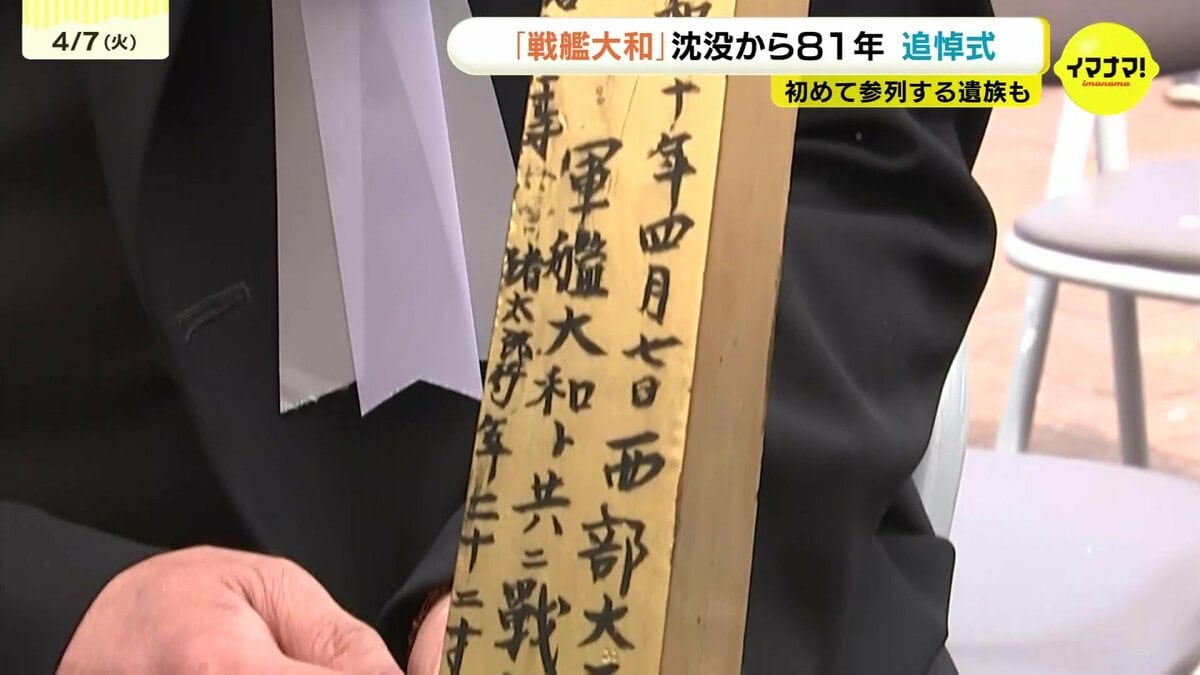 4/7(火)
「戦艦大和」沈没から81年 追悼式
初めて参列する遺族も
イマナマ!
imanama
十年四月七日西部大
軍艦大和ト共ニ戦
太郎行年二十二才